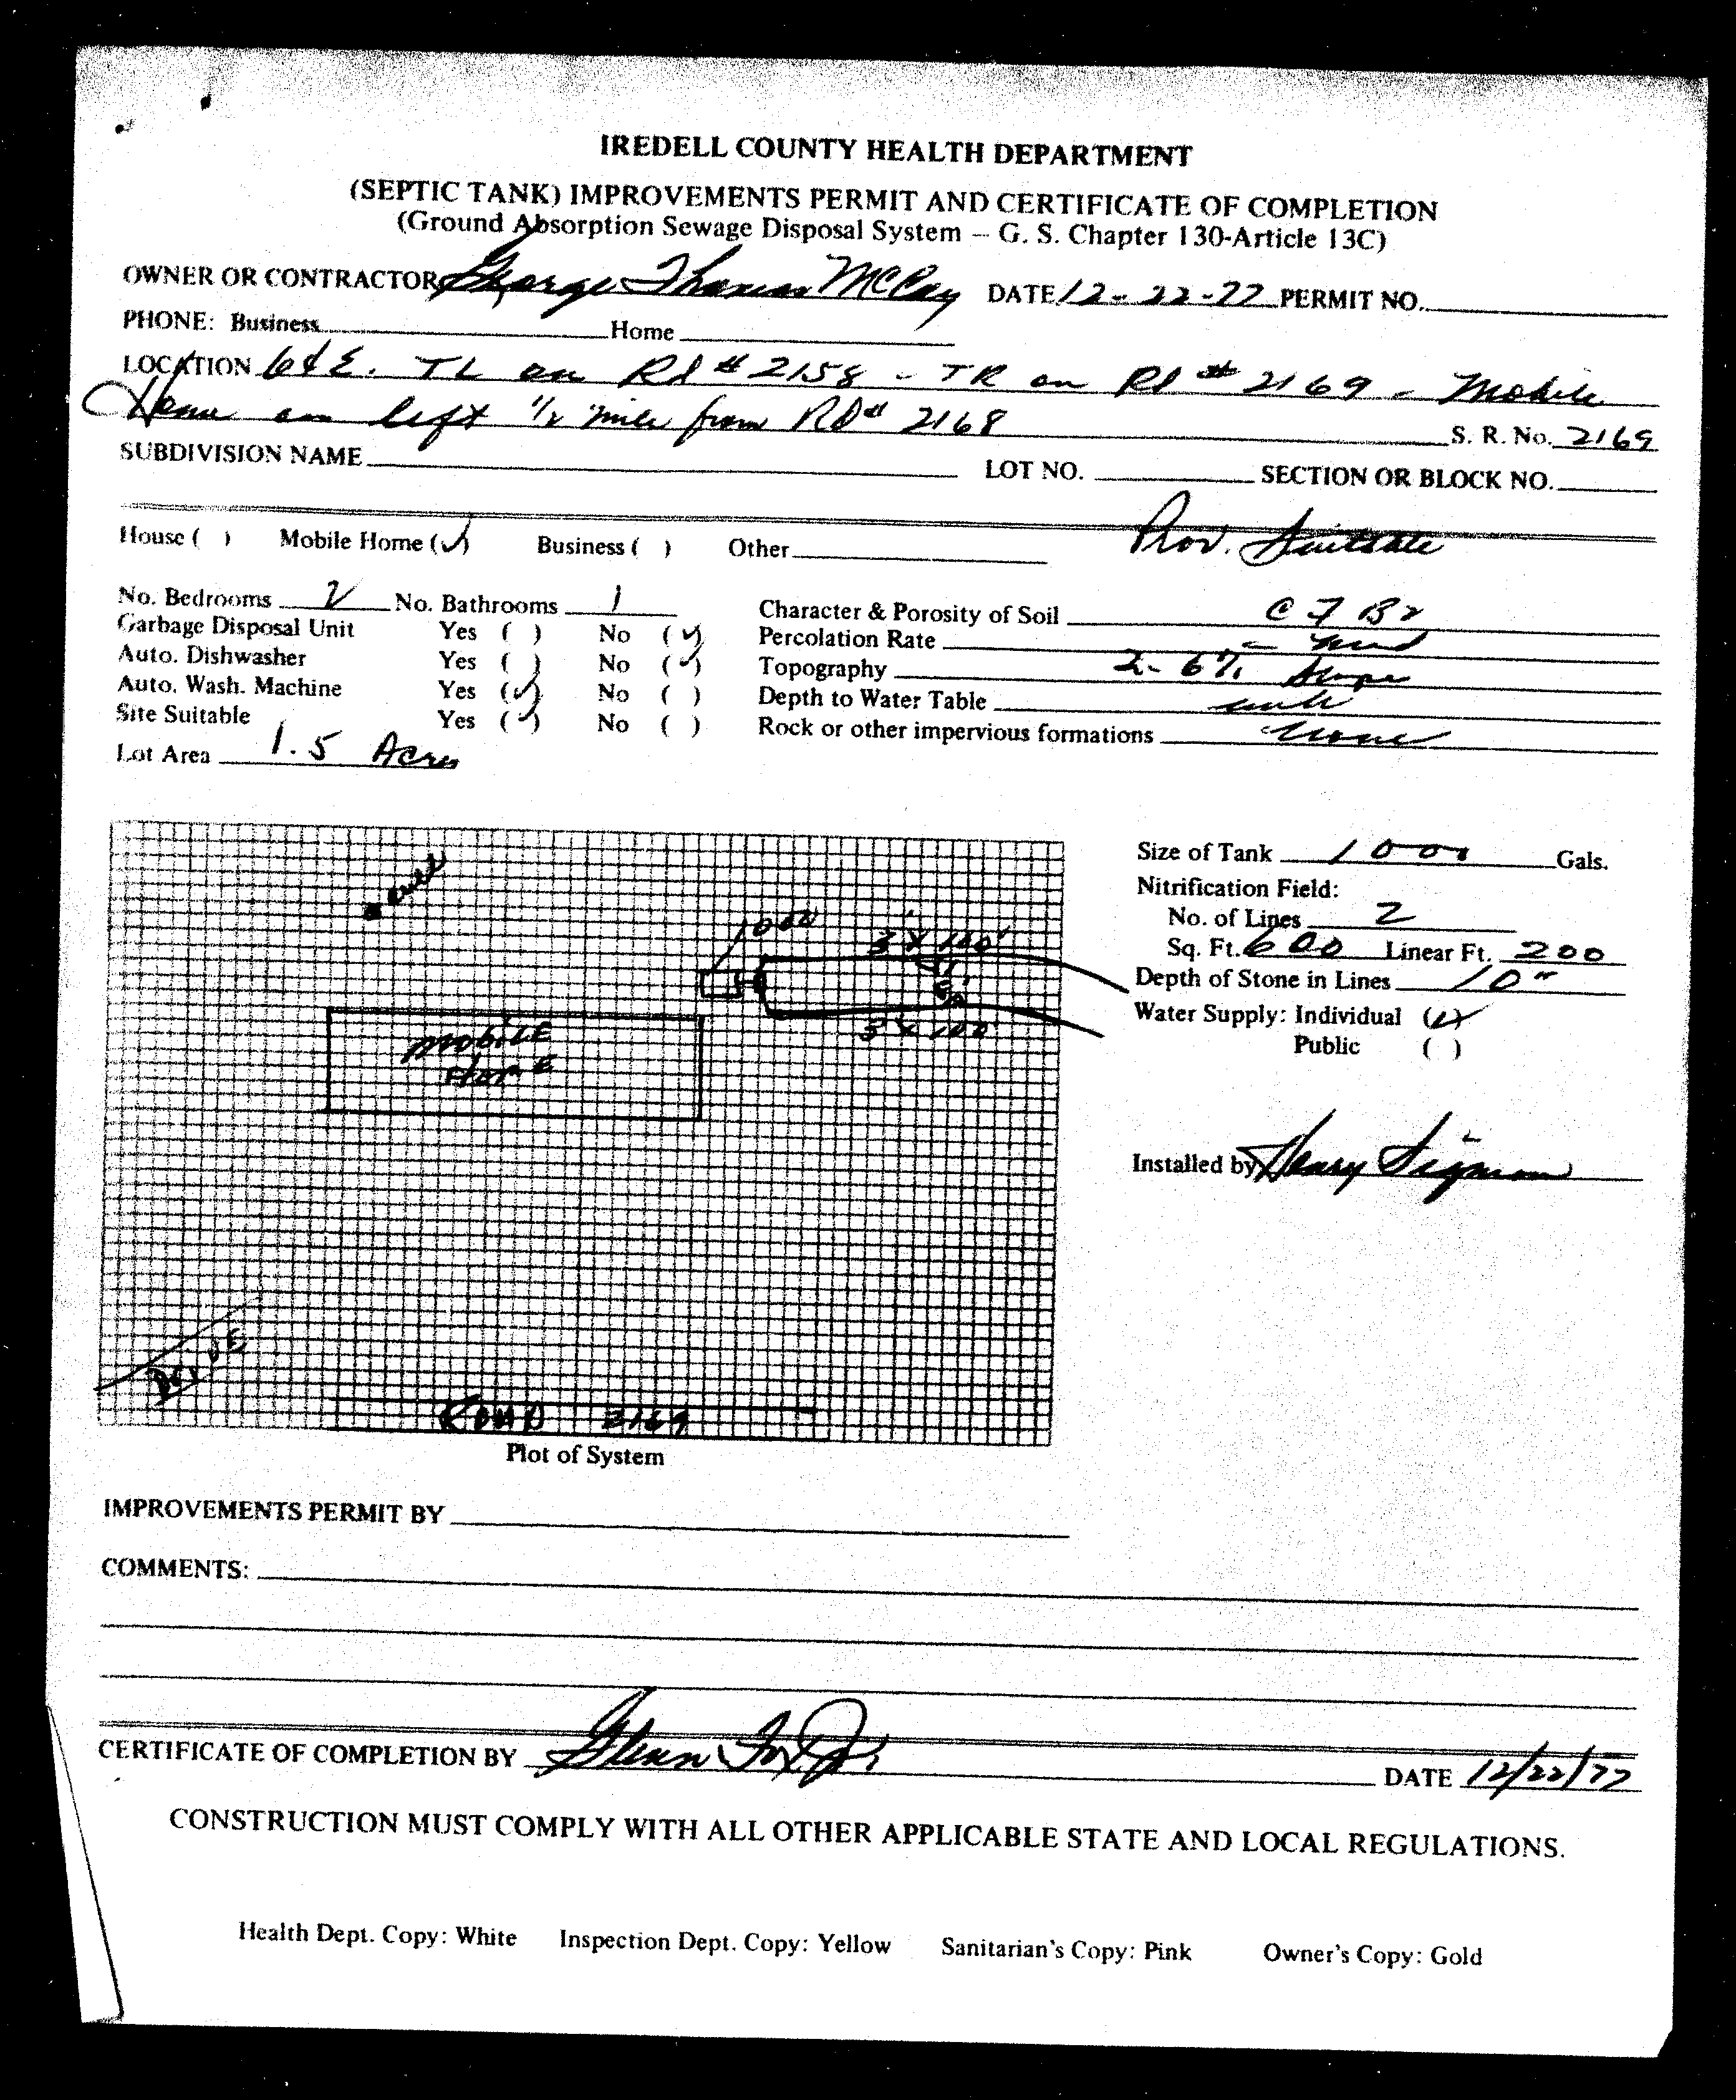 IREDELL COUNTY HEALTH DEPARTMENT
(SEPTIC TANK) IMPROVEMENTS PERMIT AND CERTIFICATE OF COMPLETION
(Ground Absorption Sewage Disposal System – G. S. Chapter 130-Article 13C)
OWNER OR CONTRACTOR George Thomas McCoy DATE 12-22-77 PERMIT NO.
PHONE: Business Home
LOCATION 64 E. TL on Rd # 2158 - TR on Rd # 2169 - Mobile
Home on left 1/2 mile from Rd # 2168 S. R. No. 2169
SUBDIVISION NAME LOT NO. SECTION OR BLOCK NO.
Prov. Suitable
House ( ) Mobile Home (✓) Business ( ) Other
No. Bedrooms 2 No. Bathrooms 1
Garbage Disposal Unit Yes ( ) No (✓)
Auto. Dishwasher Yes ( ) No (✓)
Auto. Wash. Machine Yes (✓) No ( )
Site Suitable Yes (✓) No ( )
Lot Area 1.5 Acres
Character & Porosity of Soil
Percolation Rate
Topography 2-6% slope
Depth to Water Table
Rock or other impervious formations none
well
1000
3' X 100'
3' X 100'
MOBILE
HOME
DRIVE
ROAD 2169
Plot of System
Size of Tank 1000 Gals.
Nitrification Field:
No. of Lines 2
Sq. Ft. 600 Linear Ft. 200
Depth of Stone in Lines 10"
Water Supply: Individual (✓)
Public ( )
Installed by Henry Sigmon
IMPROVEMENTS PERMIT BY
COMMENTS:
CERTIFICATE OF COMPLETION BY Glenn Fox Jr. DATE 12/22/77
CONSTRUCTION MUST COMPLY WITH ALL OTHER APPLICABLE STATE AND LOCAL REGULATIONS.
Health Dept. Copy: White Inspection Dept. Copy: Yellow Sanitarian's Copy: Pink Owner's Copy: Gold